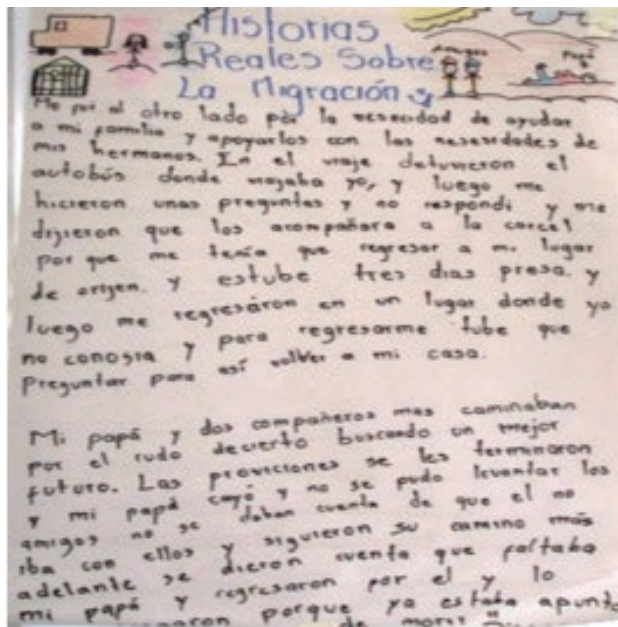 Historias
Reales Sobre
La Migración
Amigos
Papá
Me fui al otro lado por la nesesidad de ayudar
a mi familia y apoyarlos con las nesesidades de
mis hermanos. En el viaje detuvieron el
autobús donde viajaba yo, y luego me
hicieron unas preguntas y no respondi y me
dijieron que los acompañara a la carcel
por que me tenía que regresar a mi lugar
de origen. y estube tres dias presa. y
luego me regresáron en un lugar donde yo
no conosia y para regresarme tube que
preguntar para así volver a mi casa.
Mi papá y dos compañeros mas caminaban
por el rudo decierto buscando un mejor
futuro. Las proviciones se les terminaron
y mi papá cayó y no se pudo levantar los
amigos no se daban cuenta de que el no
iba con ellos y siguieron su camino más
adelante se dieron cuenta que faltaba
mi papá y regresaron por el y lo
porque ya estaba apunto
de morir